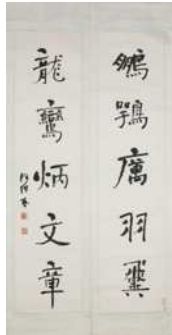 鵬鶚厲羽翼
龍鸞炳文章